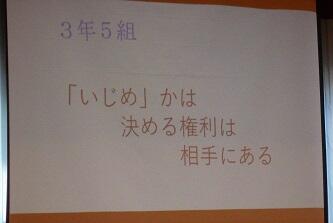 ３年５組
「いじめ」かは
決める権利は
相手にある